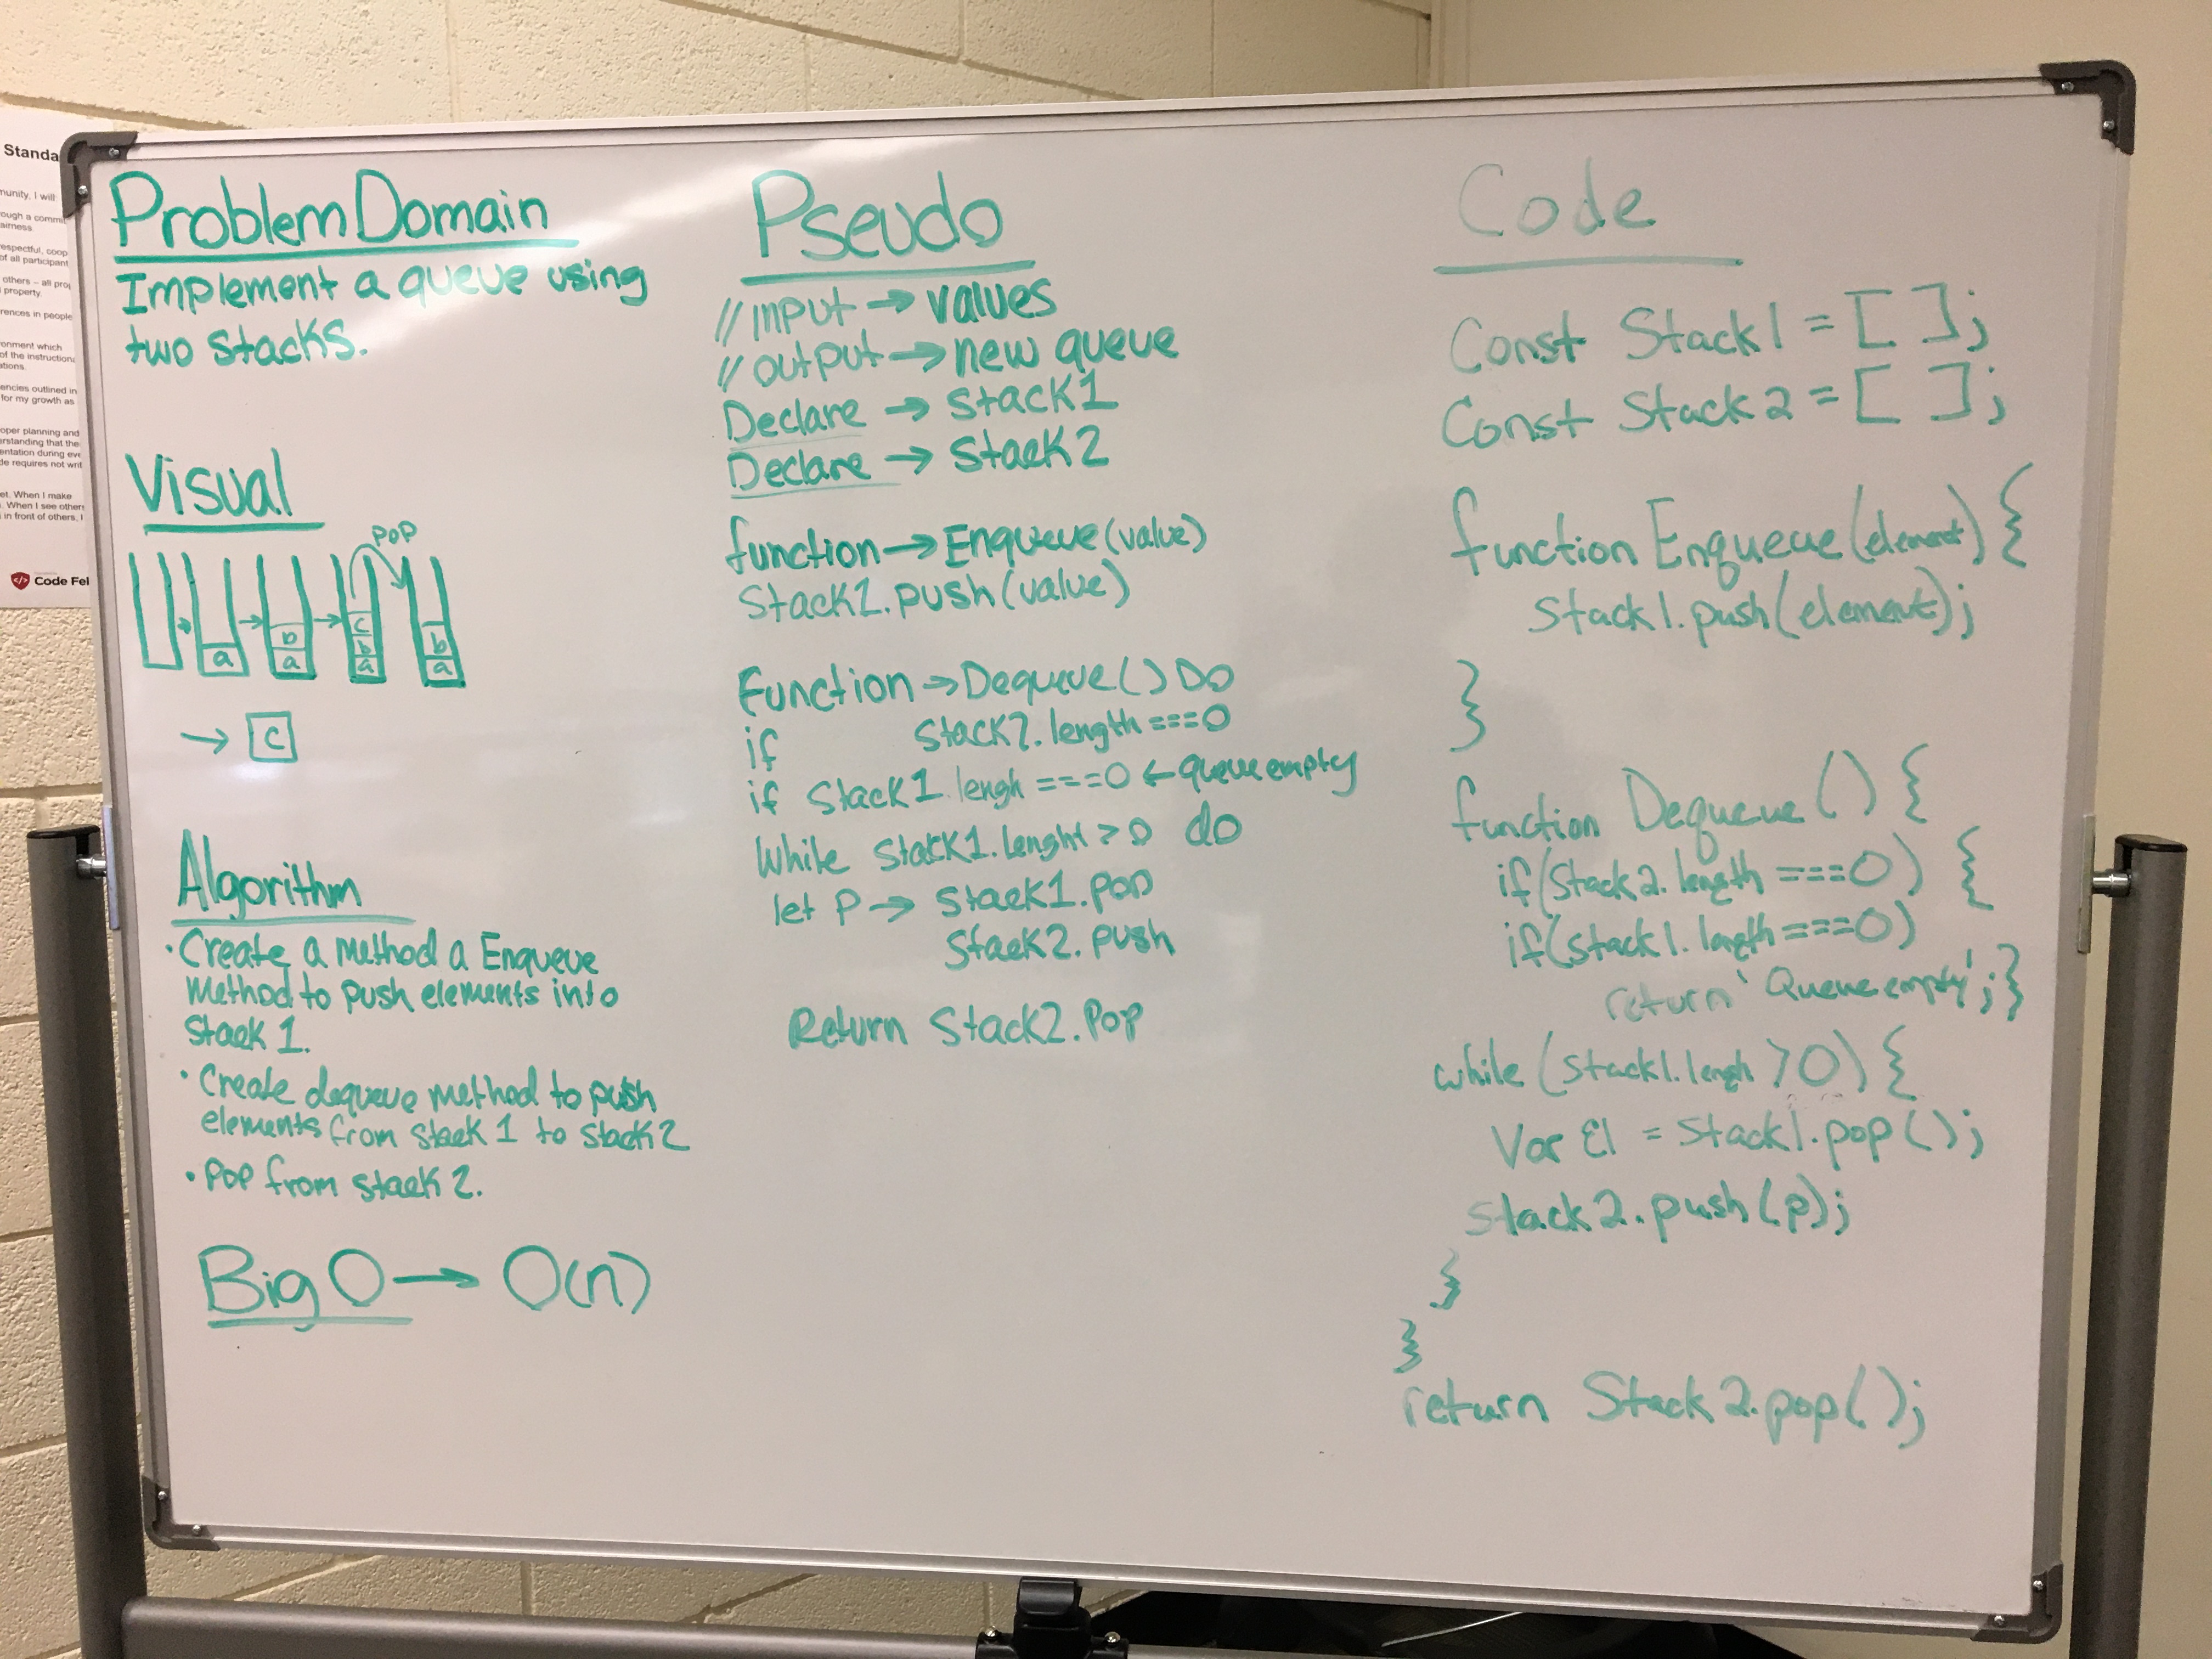 Standa
munity, I will:
ough a commit
airness
espectful, coop
of all participant
others – all proj
property.
rences in people
onment which
of the instructiona
ations.
encies outlined in
for my growth as
oper planning and
erstanding that the
entation during eve
de requires not writ
et. When I make
. When I see others
in front of others, I
Code Fel
Problem Domain
Implement a queue using
two stacks.
Visual
POP
a
b
a
c
b
a
b
a
→ c
Algorithm
• Create a method a Enqueue
Method to push elements into
Stack 1.
• Create dequeue method to push
elements from stack 1 to stack 2
• Pop from stack 2.
Big O → O(n)
Pseudo
// input → values
// output → new queue
Declare → Stack1
Declare → Stack2
function → Enqueue(value)
Stack1.push(value)
Function → Dequeue() Do
if stack2.length===0
if Stack1.lengh ===0 ← queue empty
While Stack1.lenght > 0 do
let P → Stack1.pop
Stack2.push
Return Stack2.Pop
Code
Const Stack1 = [ ];
Const Stack2 = [ ];
function Enqueue(element) {
Stack1.push(element);
}
function Dequeue() {
if(Stack2.length ===0) {
if(stack1.length===0)
return 'Queue empty';}
while (Stack1.lengh >0) {
Var El = Stack1.pop();
Stack2.push(p);
}
}
return Stack2.pop();